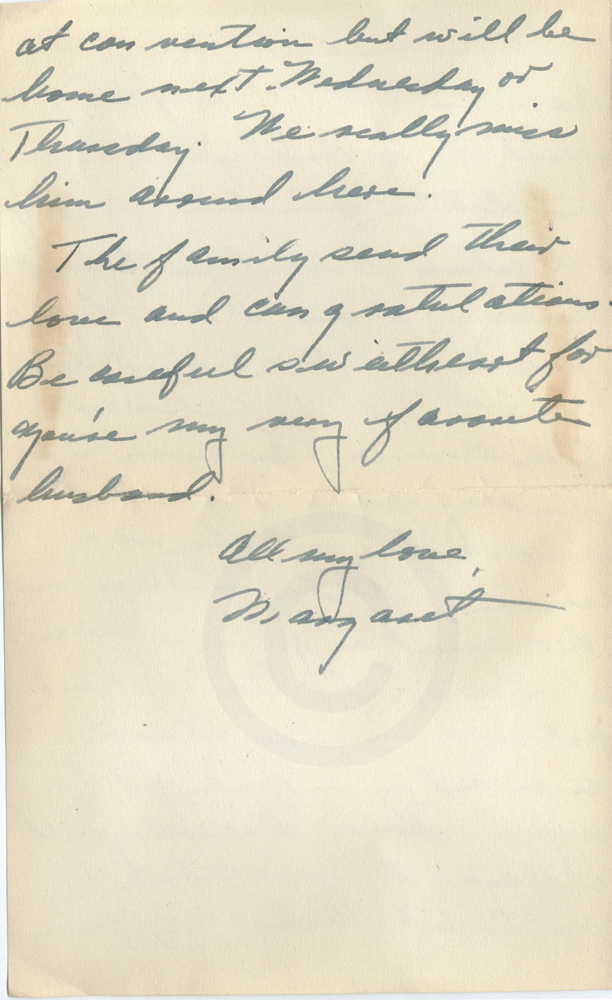 at convention but will be
home next Wednesday or
Thursday. We really miss
him around here.
The family send their
love and congratulations.
Be careful sweetheart for
you're my very favorite
husband.
All my love,
Margaret